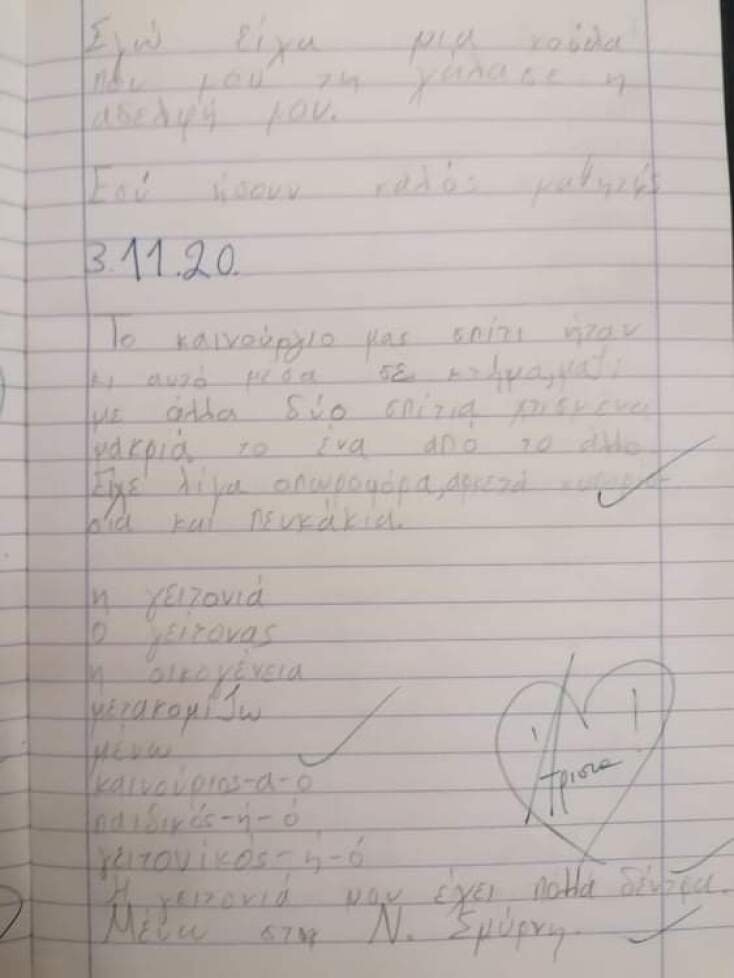 Εγώ είχα μια κούκλα
που μου τη χάλασε η
αδελφή μου.
Εσύ ήσουν καλός μαθητής
3.11.20.
Το καινούργιο μας σπίτι ήταν
κι αυτό μέσα σε κτήμα, μαζί
με άλλα δύο σπίτια χτισμένα
μακριά το ένα από το άλλο
Είχε λίγα οπωροφόρα, αρκετά
και πευκάκια.
η γειτονιά
ο γείτονας
η οικογένεια
μετακομίζω
μένω
καινούριος-α-ο
παιδικός-ή-ό
γειτονικός-ή-ό
Άριστα!
Η γειτονιά μου έχει πολλά δέντρα.
Μένω στη Ν. Σμύρνη.